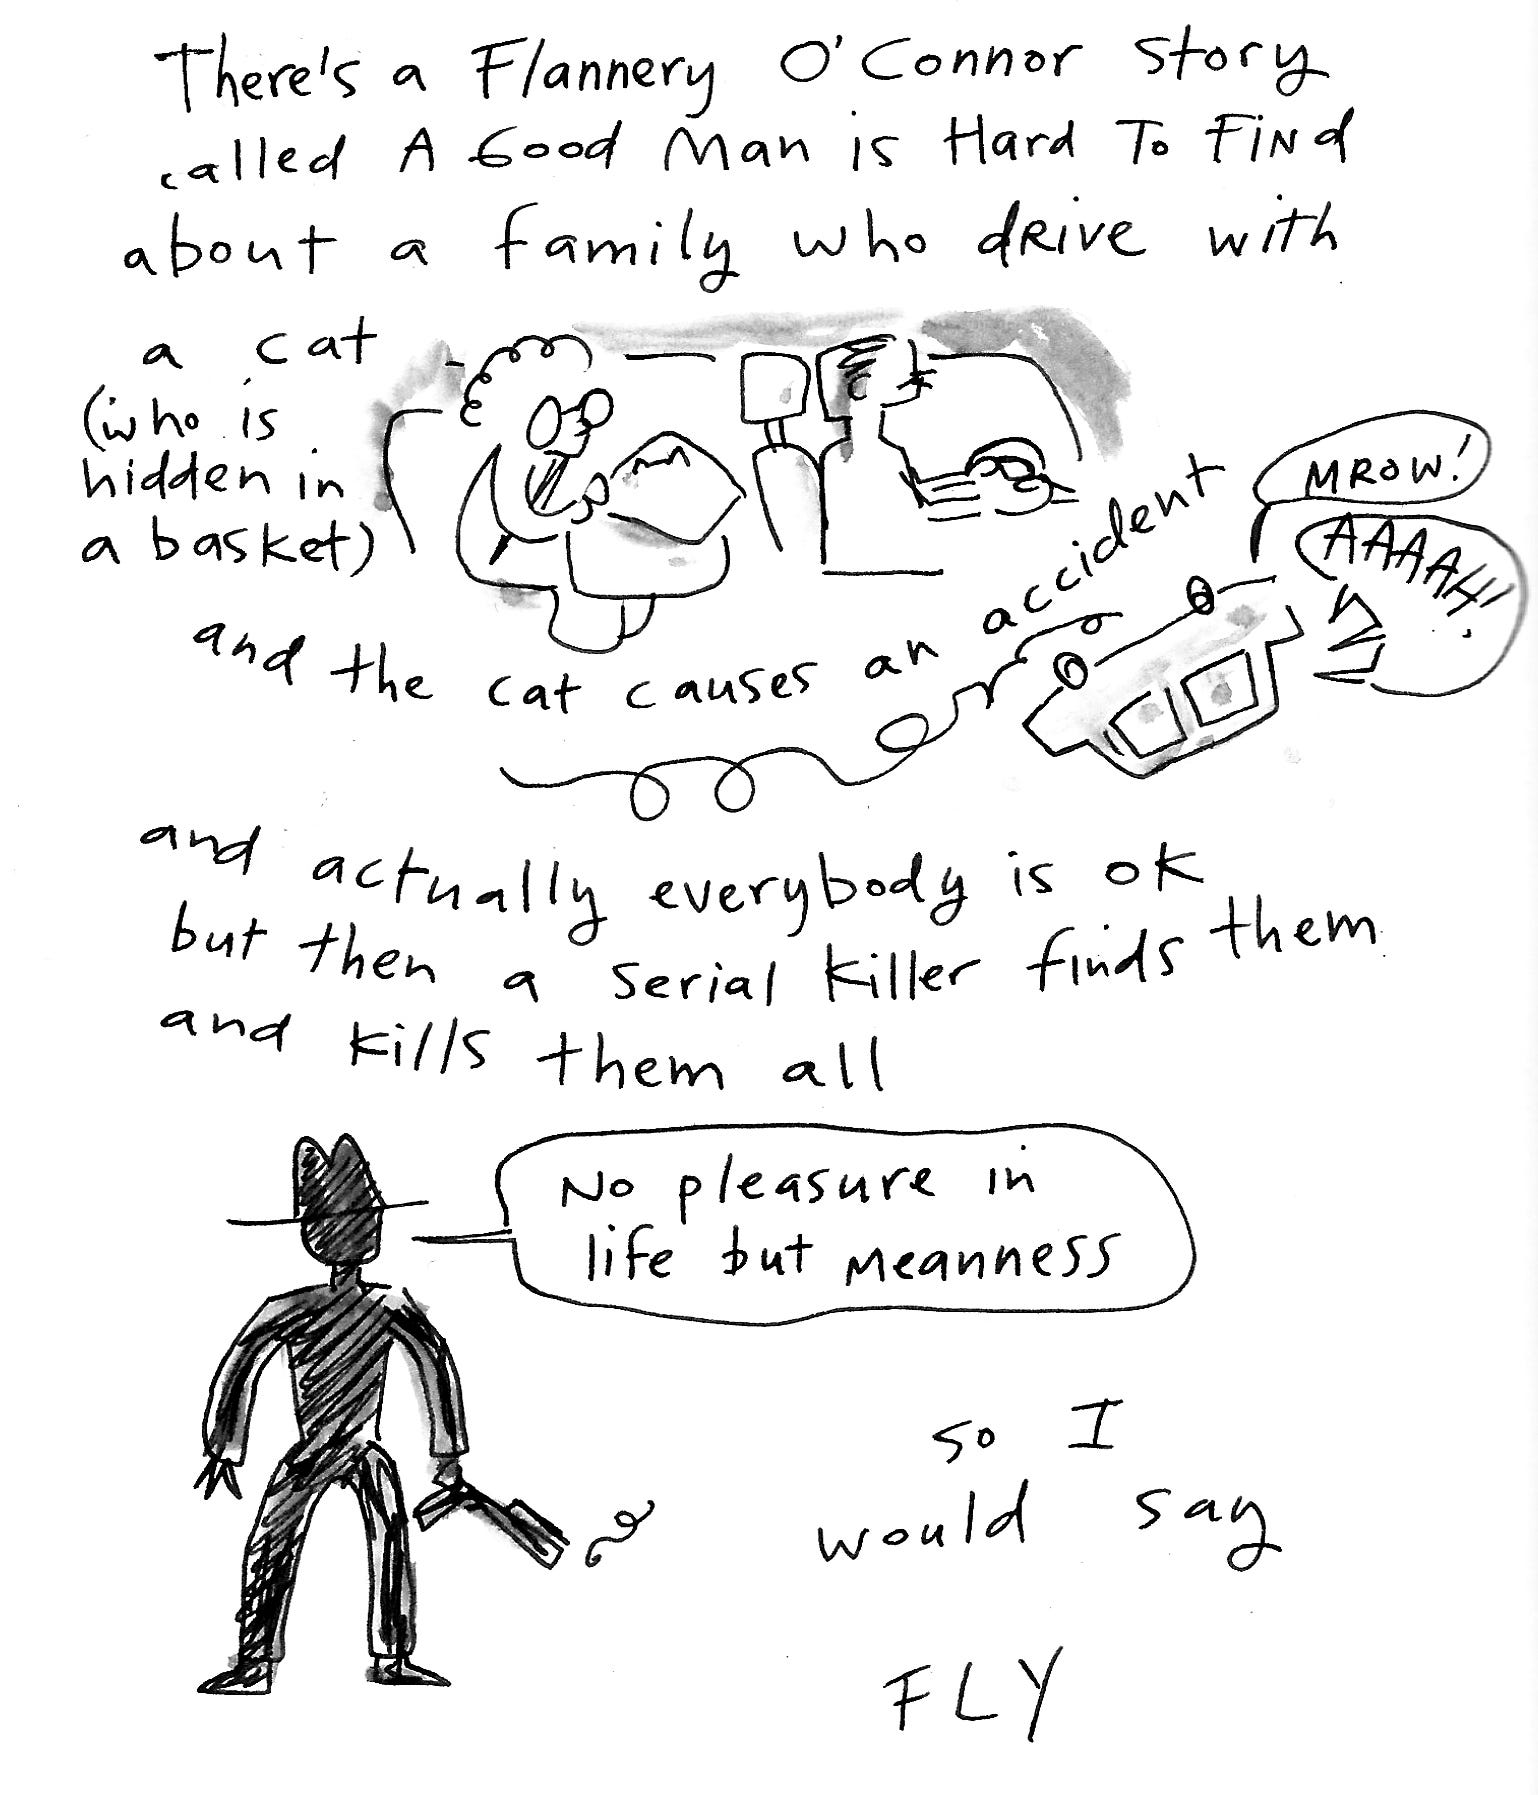 There's a Flannery O'Connor story
called A Good Man is Hard To Find
about a family who drive with
a cat
(who is
hidden in
a basket)
and the cat causes an accident
MROW!
AAAAH!
and actually everybody is ok
but then a serial killer finds them
and kills them all
No pleasure in
life but meanness
so I
would say
FLY